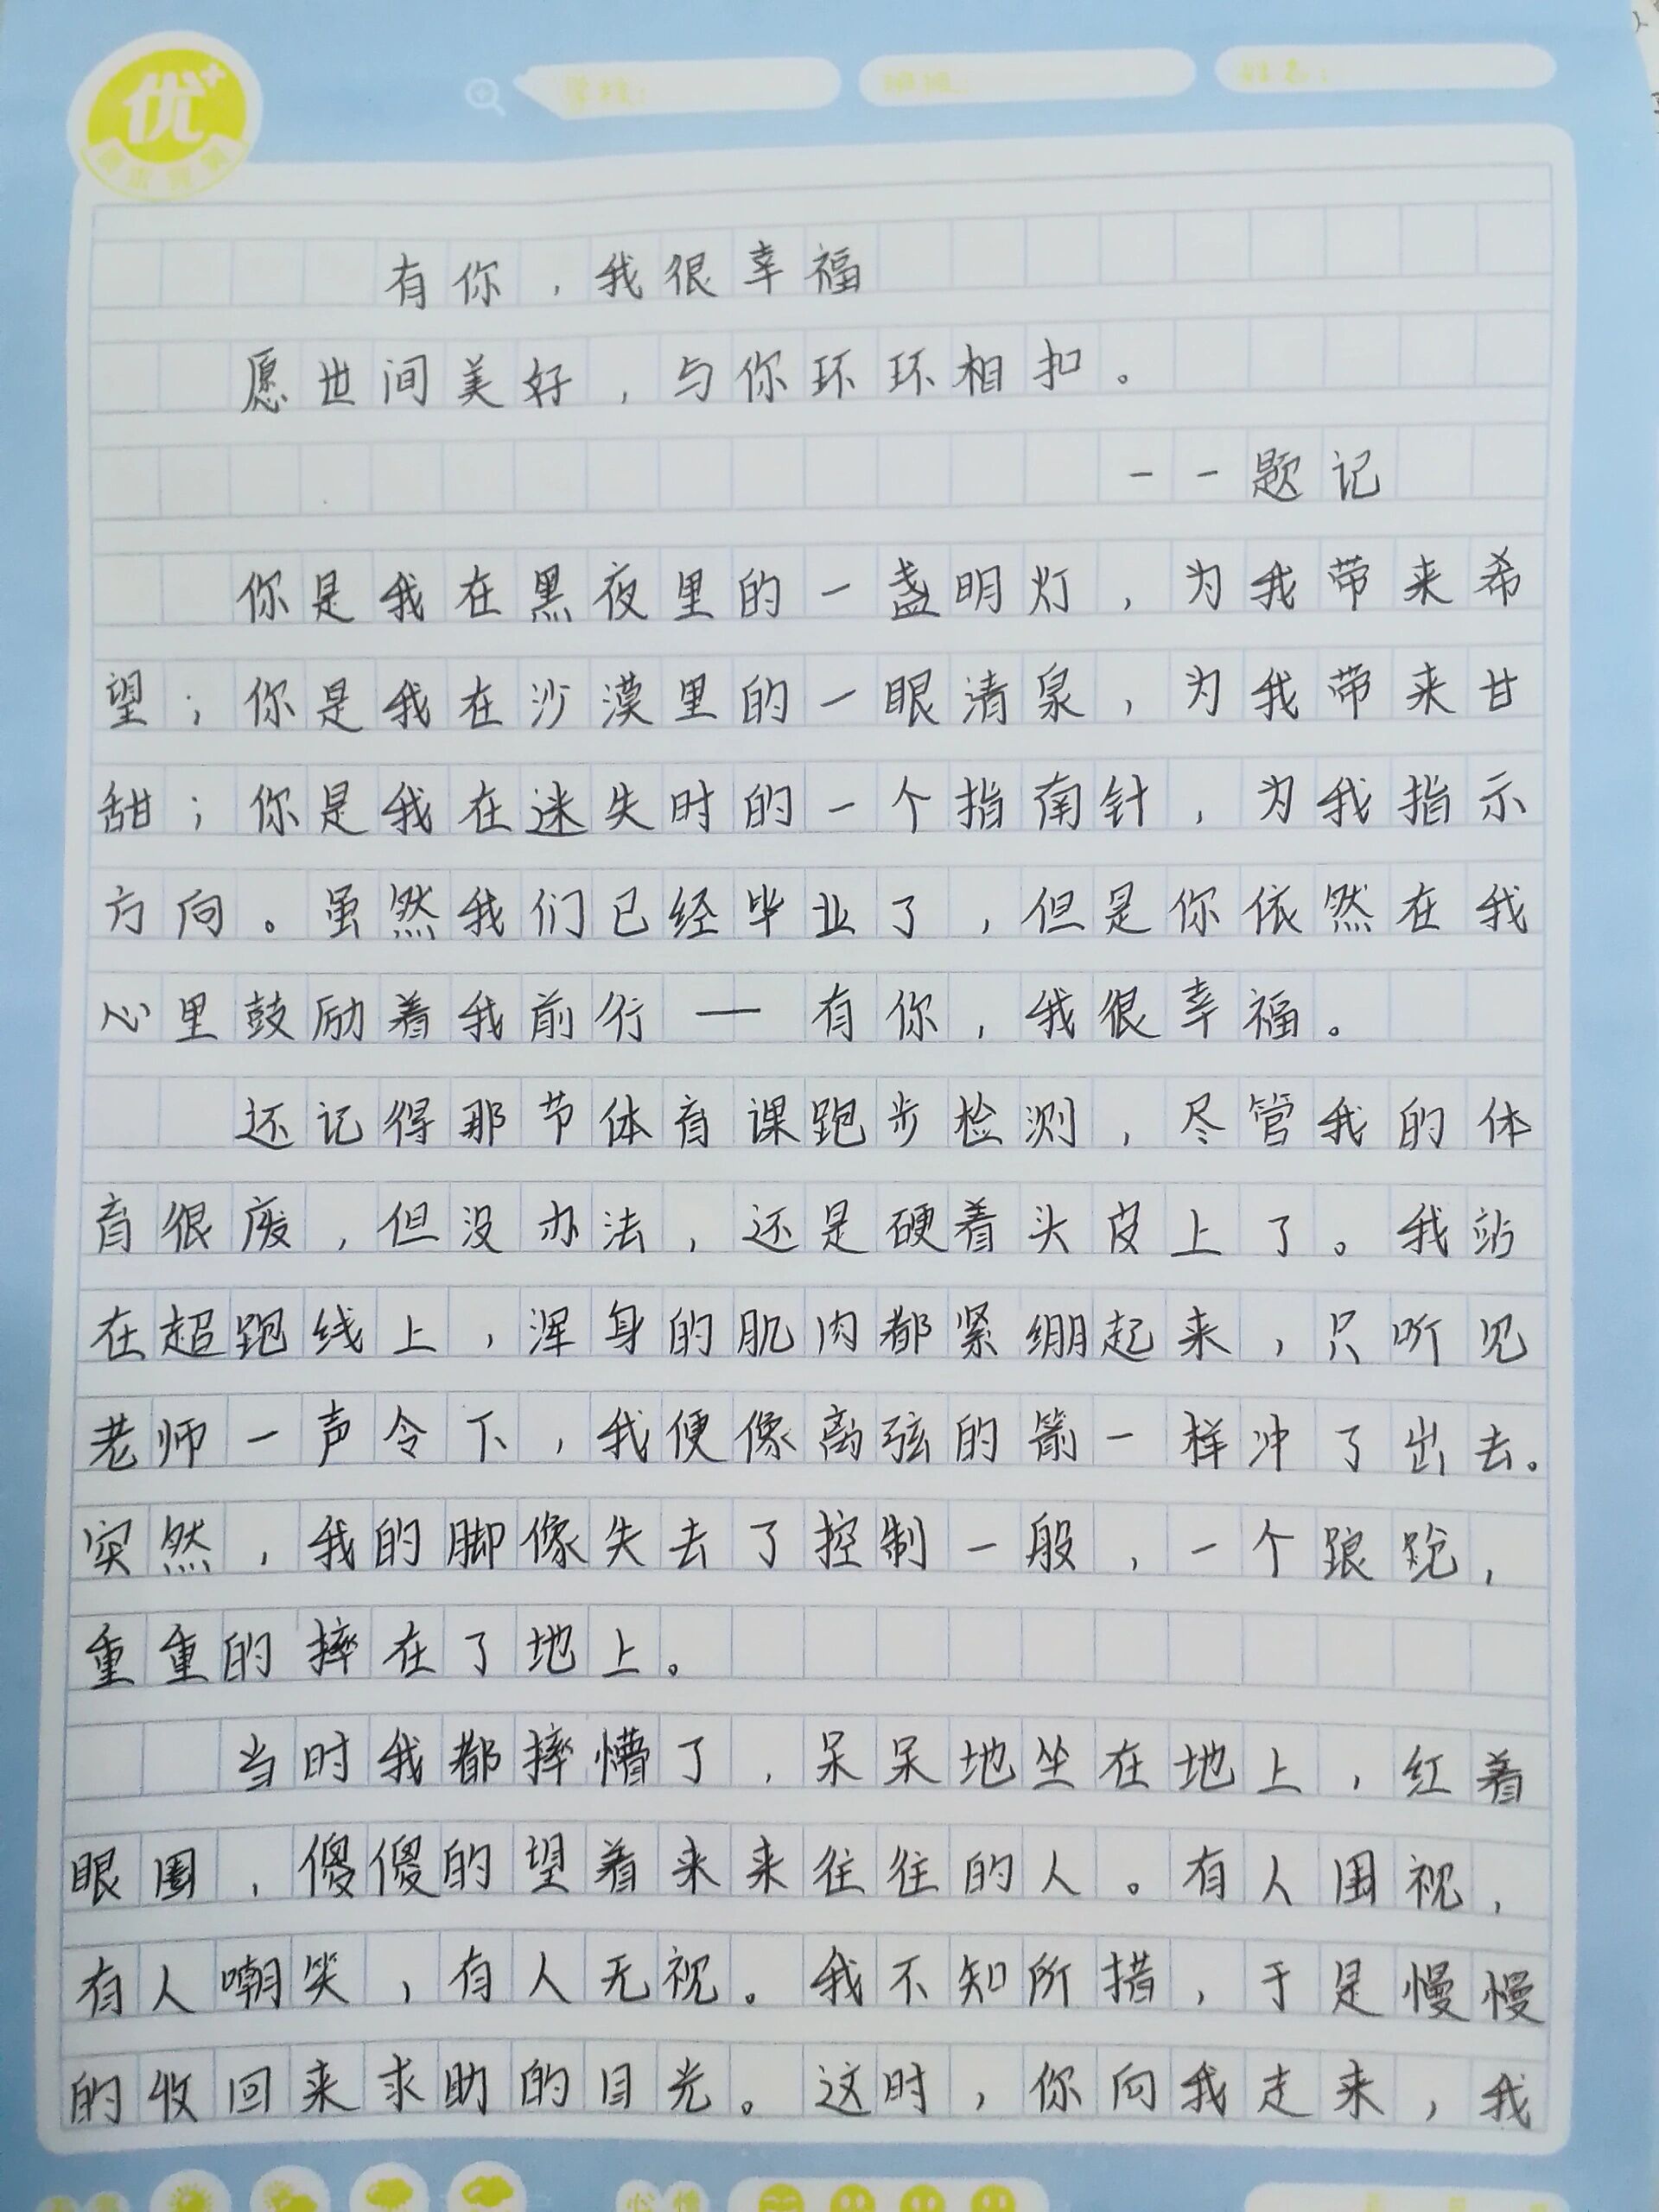 优+
学校：
班级：
姓名：
有你，我很幸福
愿世间美好，与你环环相扣。
——题记
你是我在黑夜里的一盏明灯，为我带来希
望；你是我在沙漠里的一眼清泉，为我带来甘
甜；你是我在迷失时的一个指南针，为我指示
方向。虽然我们已经毕业了，但是你依然在我
心里鼓励着我前行——有你，我很幸福。
还记得那节体育课跑步检测，尽管我的体
育很废，但没办法，还是硬着头皮上了。我站
在超跑线上，浑身的肌肉都紧绷起来，只听见
老师一声令下，我便像离弦的箭一样冲了出去。
突然，我的脚像失去了控制一般，一个踉跄，
重重的摔在了地上。
当时我都摔懵了，呆呆地坐在地上，红着
眼圈，傻傻的望着来来往往的人。有人围视，
有人嘲笑，有人无视。我不知所措，于是慢慢
的收回来求助的目光。这时，你向我走来，我
心情